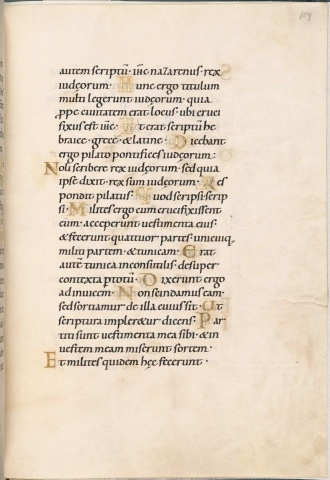 autem scriptũ· iħc nazarenus· rex
iudęorum· Hunc ergo titulum
multi legerunt iudęorum· quia
ꝓpe ciuitatem erat locus· ubi cruci
fixus est iħc· Et erat scriptũ he
braice· grecę· & latine· Dicebant
ergo pilato pontifices iudęorum·
Noli scribere rex iudęorum· sed quia
ipse dixit· rex sum iudęorum· Res
pondit pilatus· Quod scripsi· scrip
si· Milites ergo cum crucifixissent
eum· acceperunt uestimenta eius·
& fecerunt quattuor partes· unicuiq;
militi partem· & tunicam· Erat
autẽ tunica inconsutilis· desuper
contexta ꝑ totũ· Dixerunt ergo
ad inuicem· Non scindamus eam·
sed sortiamur de illa cuius sit· Ut
scriptura impleretur dicens· Par
titi sunt uestimenta mea sibi· & in
uestem meam miserunt sortem·
Et milites quidem hęc fecerunt·